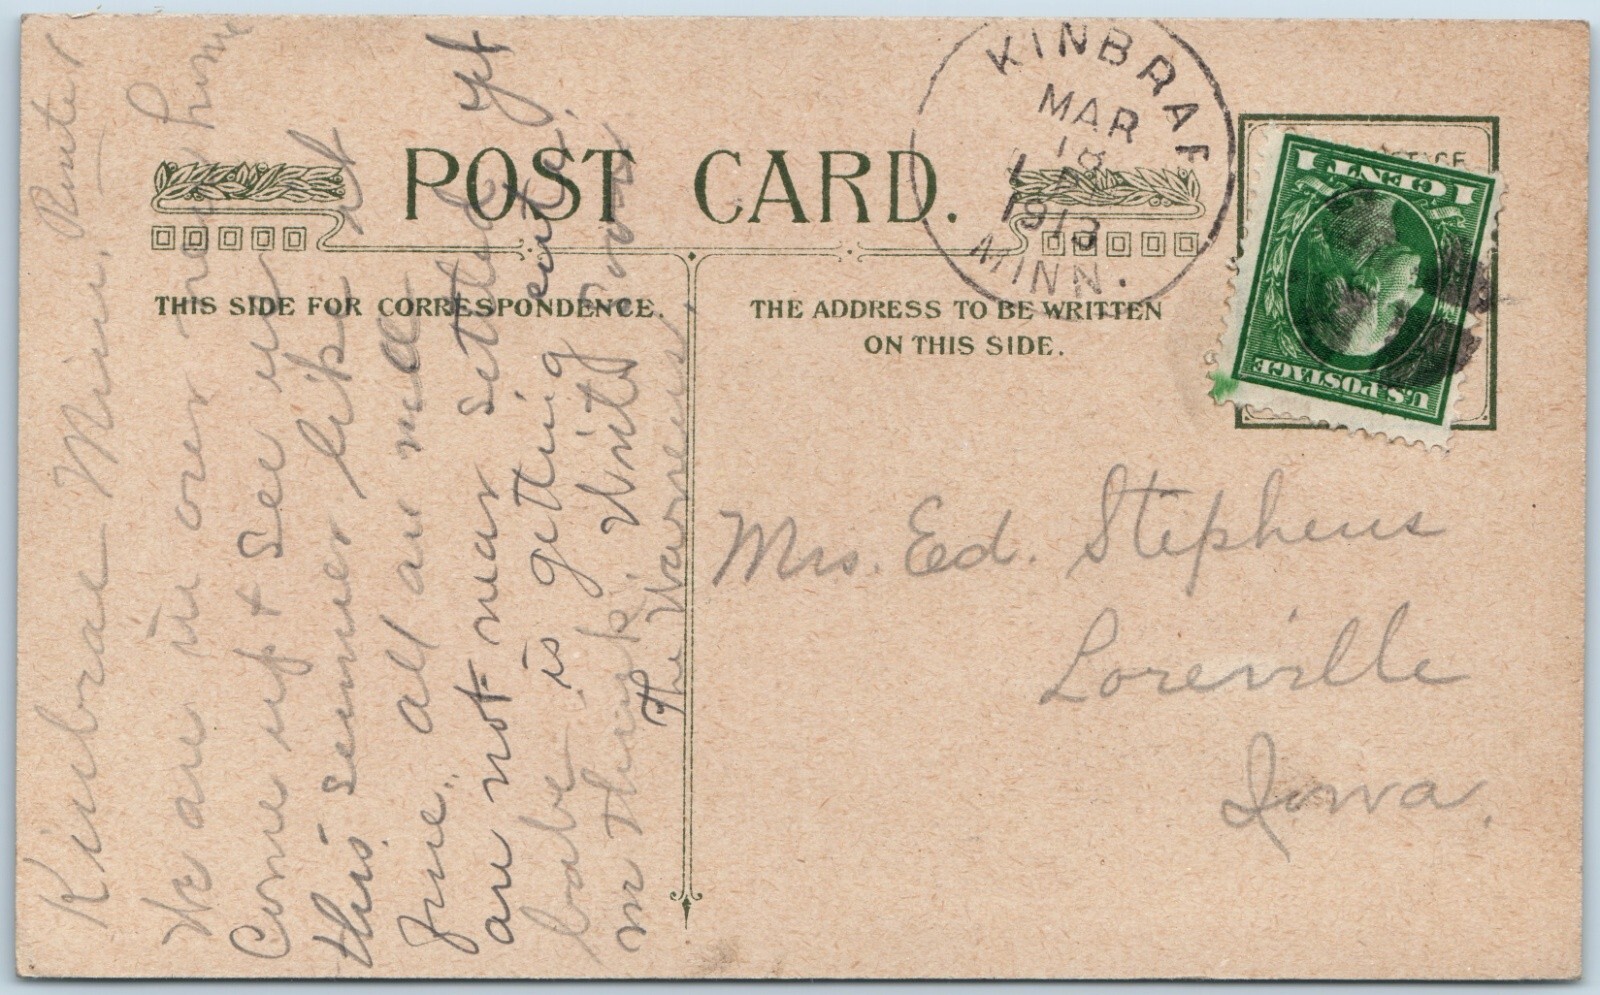 POST CARD.
THIS SIDE FOR CORRESPONDENCE.
THE ADDRESS TO BE WRITTEN
ON THIS SIDE.
KINBRAE
MAR
18
1913
MINN.
1 CENT 1
U.S. POSTAGE
Kinbrae Minn.
We are in our new home
Come up & See us
this summer like it
fine. all are well
are not near settled yet
babe is getting cute,
we think. Write soon
The Warrens.
Mrs. Ed. Stephens
Loreville
Iowa.